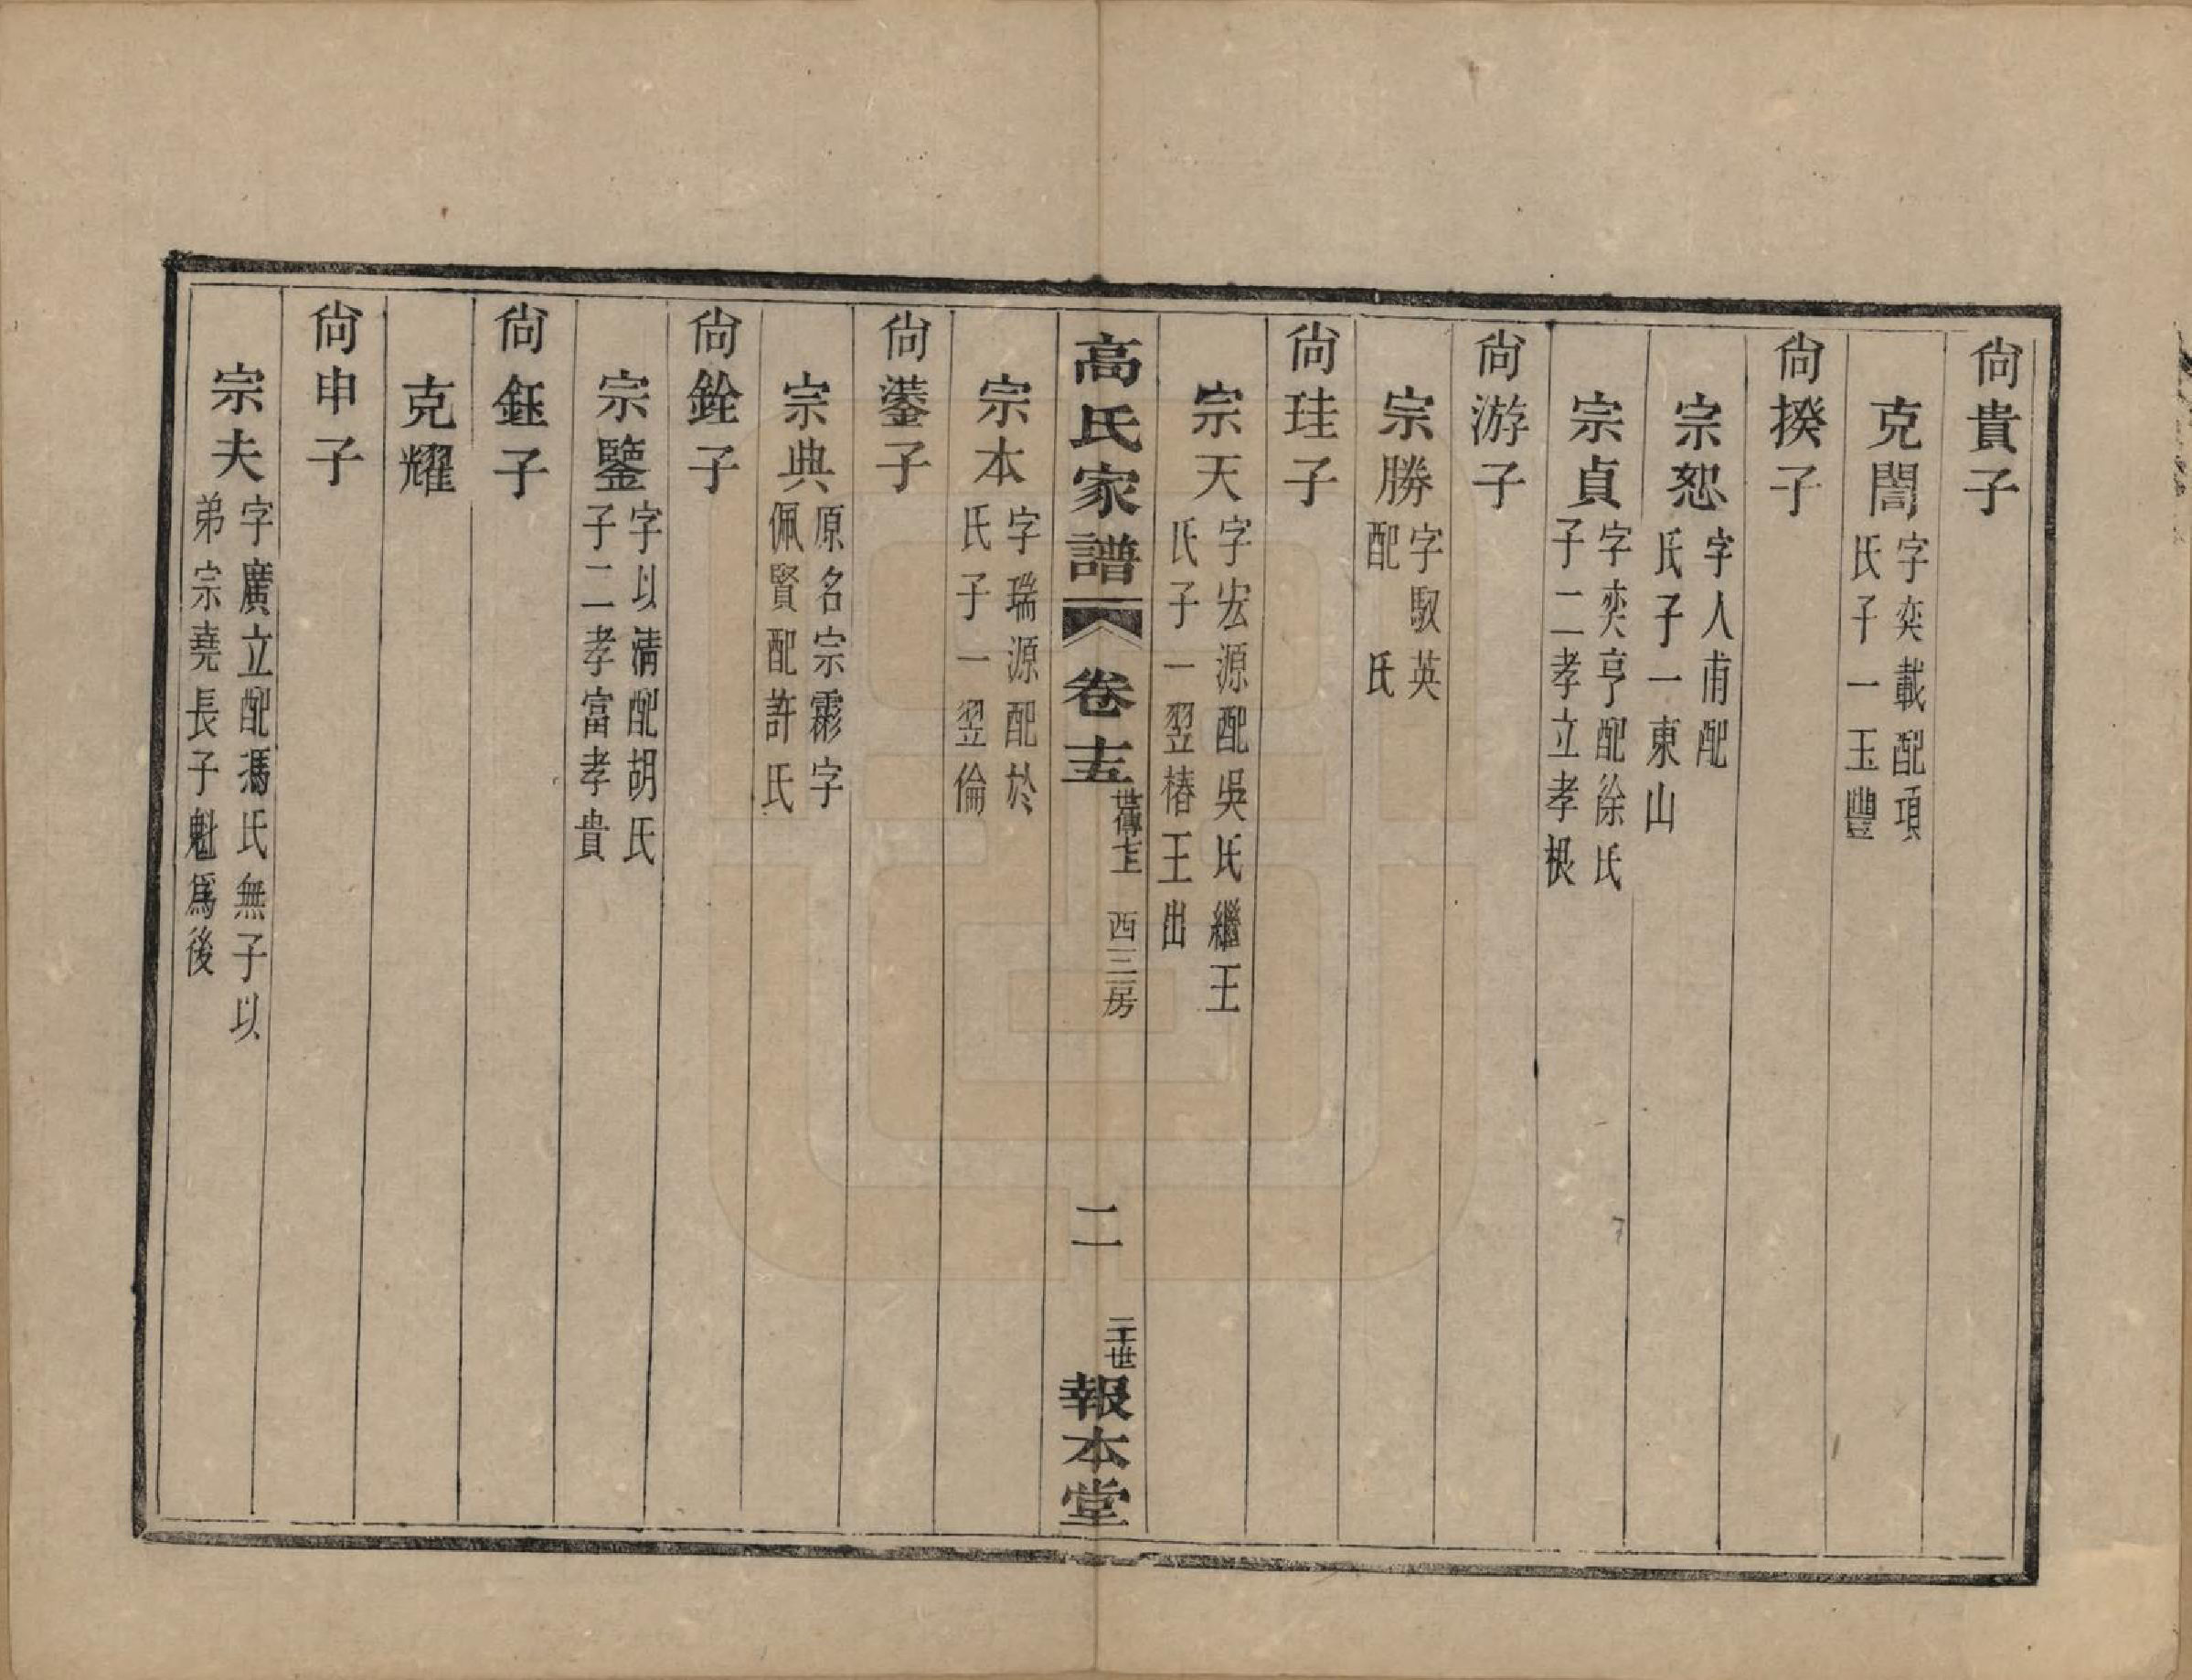 尙貴子
克誾 字奕載配項
氏子一玉豐
尙揆子
宗恕 字人甫配
氏子一東山
宗貞 字奕亨配徐氏
子二孝立孝根
尙游子
宗勝 字馭英
配　氏
尙珪子
宗天 字宏源配吳氏繼王
氏子一翌椿王出
高氏家譜 卷十五 世傳十五 西三房 二 二十世 報本堂
宗本 字瑞源配於
氏子一翌倫
尙蓥子
宗典 原名宗霦字
佩賢配許氏
尙銓子
宗鑒 字以淸配胡氏
子二孝富孝貴
尙鈺子
克耀
尙申子
宗夫 字廣立配馮氏無子以
弟宗堯長子魁爲後